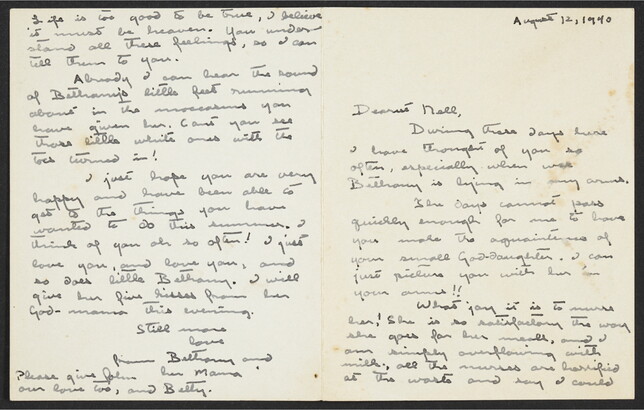 August 12, 1940
Dearest Nell,
During these days here
I have thought of you so
often, especially when wee
Bethany is lying in my arms.
The days cannot pass
quickly enough for me to have
you make the aquaintence of
your small God-daughter. I can
just picture you with her in
your arms!!
What joy it is to nurse
her! She is so satisfactory the way
she goes for her meals, and I
am simply overflowing with
milk, all the nurses are horrified
at the waste and say I could
Life is too good to be true, I believe
it must be heaven. You under-
stand all these feelings, so I can
tell them to you.
Already I can hear the sound
of Bethany's little feet running
about in the moccasins you
have given her. Can't you see
those little white ones with the
toes turned in!
I just hope you are very
happy and have been able to
get to the things you have
wanted to do this summer. I
think of you oh so often! I just
love you, and love you, and
so does little Bethany. I will
give her five kisses from her
God-mama this evening.
Still more
love
from Bethany and
her Mama
Please give John
our love too, and Betty.